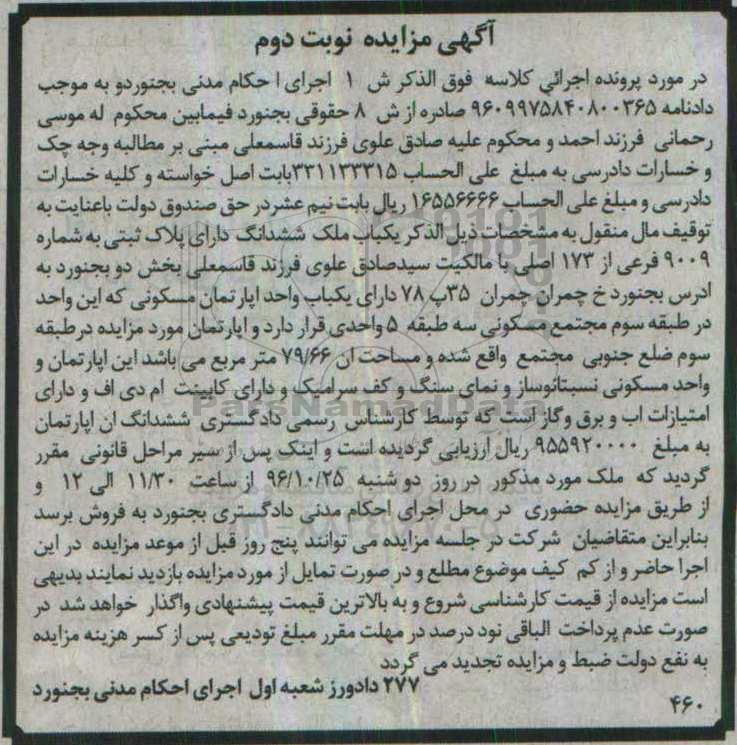 آگهی مزایده نوبت دوم
در مورد پرونده اجرائی کلاسه فوق الذکر ش 1 اجرای ا حکام مدنی بجنوردو به موجب
دادنامه ۹۶۰۹۹۷۵۸۴۰۸۰۰۳۶۵ صادره از ش ۸ حقوقی بجنورد فیمابین محکوم له موسی
رحمانی فرزند احمد و محکوم علیه صادق علوی فرزند قاسمعلی مبنی بر مطالبه وجه چک
و خسارات دادرسی به مبلغ علی الحساب ۳۳۱۱۳۳۳۱۵بابت اصل خواسته و کلیه خسارات
دادرسی و مبلغ علی الحساب ۱۶۵۵۶۶۶۶ ریال بابت نیم عشردر حق صندوق دولت باعنایت به
توقیف مال منقول به مشخصات ذیل الذکر یکباب ملک ششدانگ دارای پلاک ثبتی به شماره
۹۰۰۹ فرعی از ۱۷۳ اصلی با مالکیت سیدصادق علوی فرزند قاسمعلی بخش دو بجنورد به
ادرس بجنورد خ چمران چمران ۳۵پ ۷۸ دارای یکباب واحد اپارتمان مسکونی که این واحد
در طبقه سوم مجتمع مسکونی سه طبقه ۵ واحدی قرار دارد و اپارتمان مورد مزایده درطبقه
سوم ضلع جنوبی مجتمع واقع شده و مساحت ان ۷۹/۶۶ متر مربع می باشد این اپارتمان و
واحد مسکونی نسبتانوساز و نمای سنگ و کف سرامیک و دارای کابینت ام دی اف و دارای
امتیازات اب و برق وگاز است که توسط کارشناس رسمی دادگستری ششدانگ ان اپارتمان
به مبلغ ۹۵۵۹۲۰۰۰۰ ریال ارزیابی گردیده است و اینک پس از سیر مراحل قانونی مقرر
گردید که ملک مورد مذکور در روز دو شنبه ۹۶/۱۰/۲۵ از ساعت ۱۱/۳۰ الی ۱۲ و
از طریق مزایده حضوری در محل اجرای احکام مدنی دادگستری بجنورد به فروش برسد
بنابراین متقاضیان شرکت در جلسه مزایده می توانند پنج روز قبل از موعد مزایده در این
اجرا حاضر و از کم کیف موضوع مطلع و در صورت تمایل از مورد مزایده بازدید نمایند بدیهی
است مزایده از قیمت کارشناسی شروع و به بالاترین قیمت پیشنهادی واگذار خواهد شد در
صورت عدم پرداخت الباقی نود درصد در مهلت مقرر مبلغ تودیعی پس از کسر هزینه مزایده
به نفع دولت ضبط و مزایده تجدید می گردد
۲۷۷ دادورز شعبه اول اجرای احکام مدنی بجنورد
۴۶۰
ParsNamadData